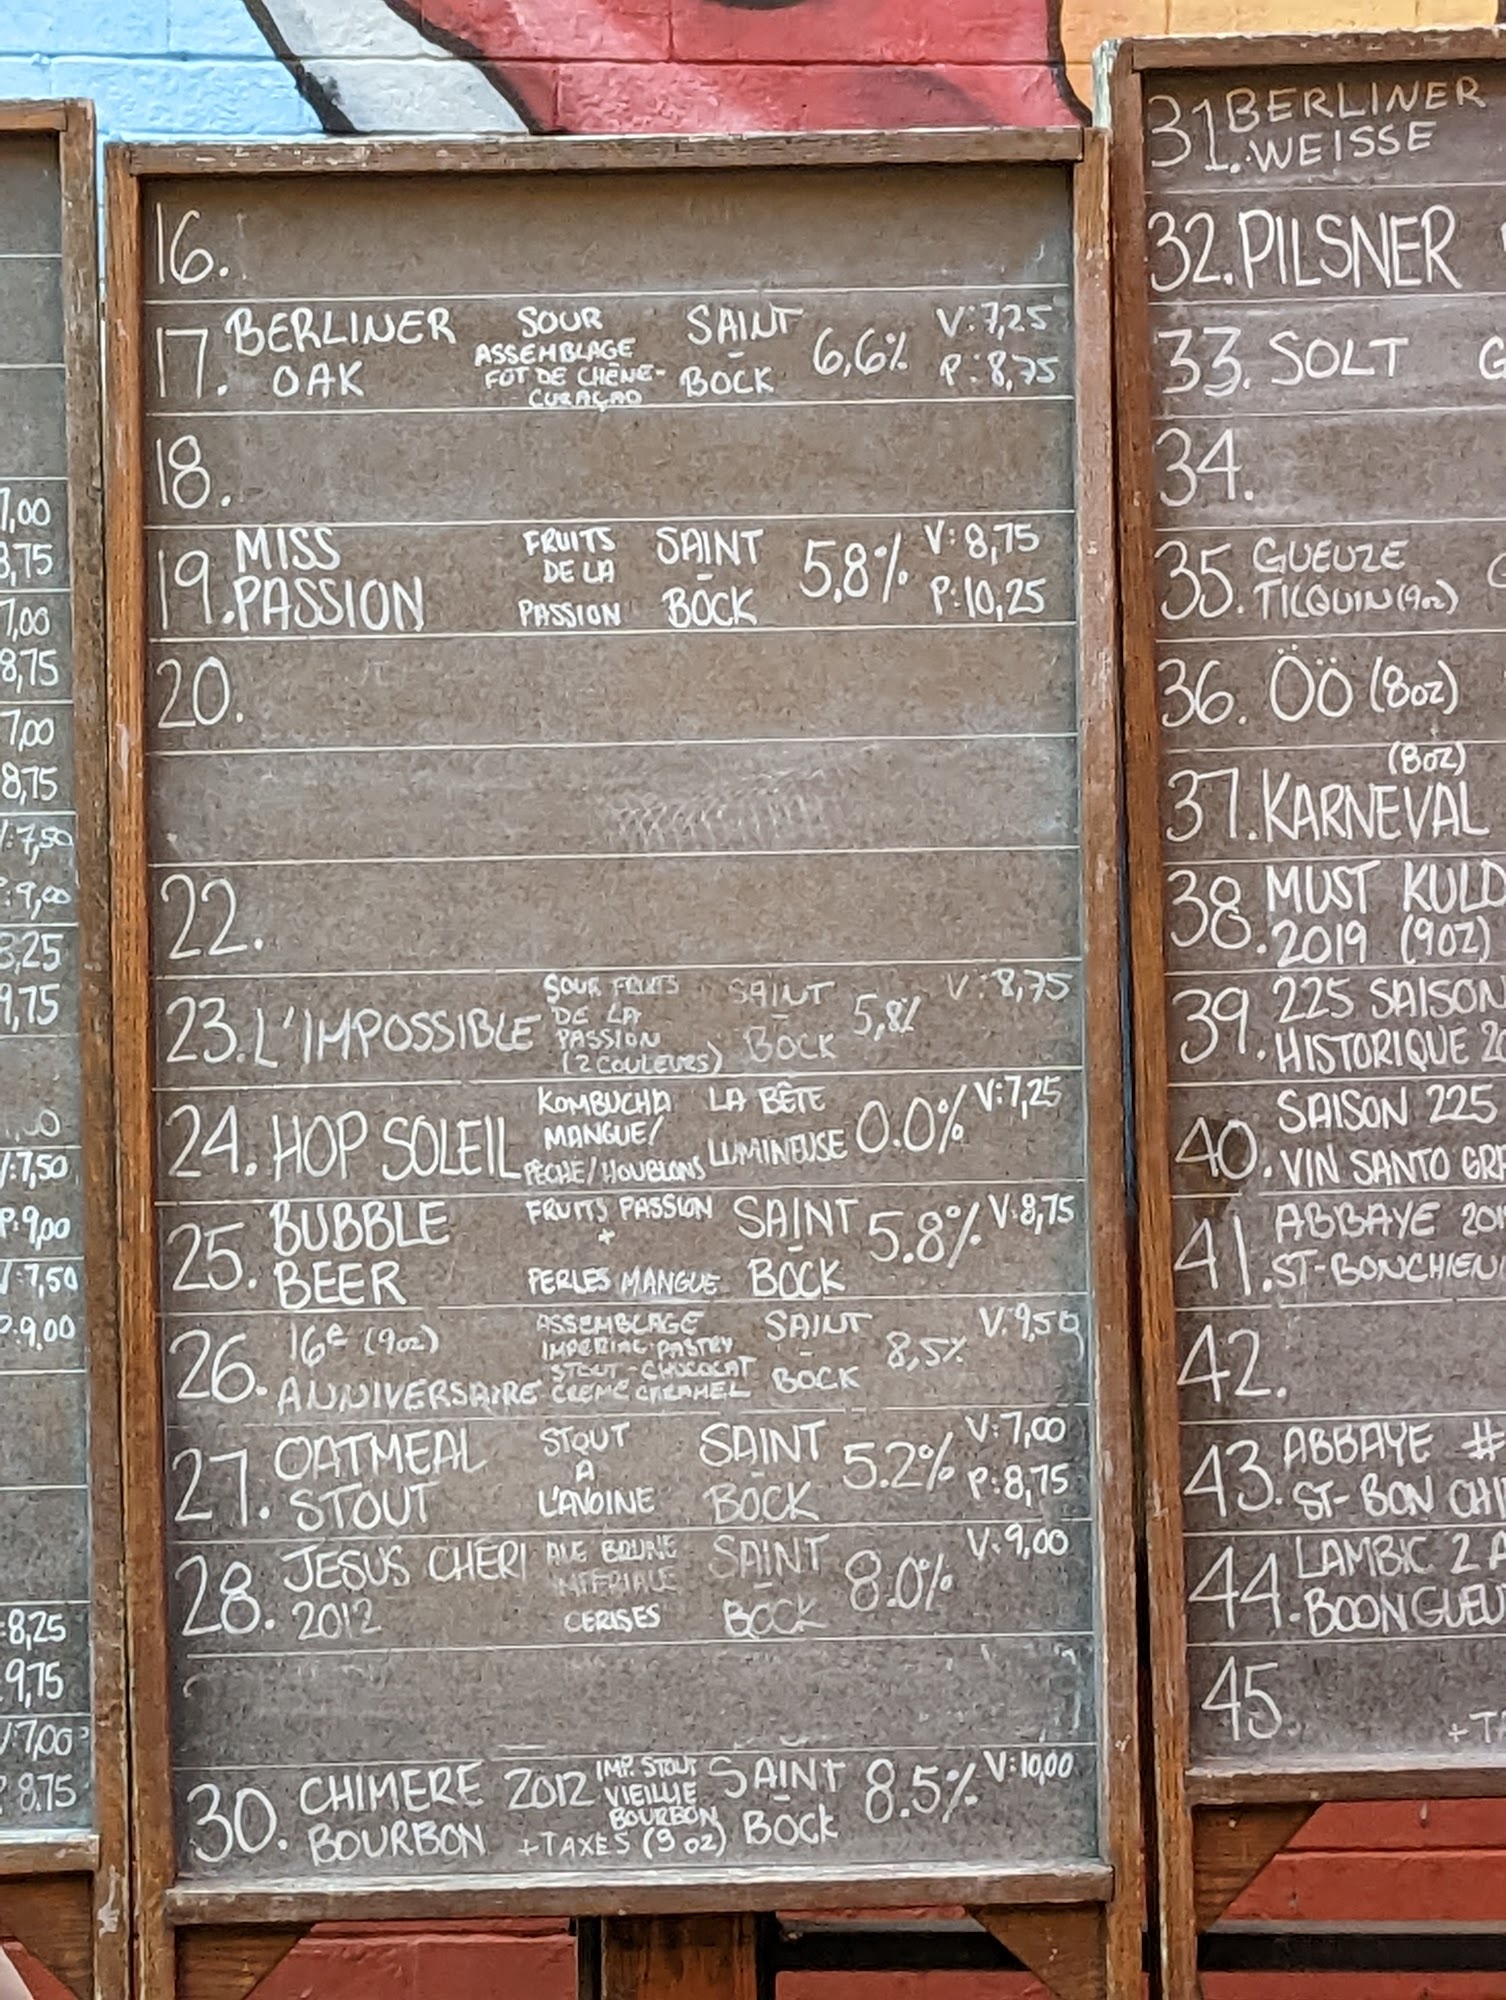 7,00
8,75
7,00
8,75
7,00
8,75
V:7,50
P:9,00
8,25
9,75
V:7,50
P:9,00
V:7,50
P:9,00
:8,25
9,75
V:7,00
P 8.75
16.
17. BERLINER OAK SOUR ASSEMBLAGE FÛT DE CHÊNE- CURAÇAO SAINT - BOCK 6,6% V:7,25 P:8,75
18.
19. MISS PASSION FRUITS DE LA PASSION SAINT - BOCK 5,8% V:8,75 P:10,25
20.
22.
23. L'IMPOSSIBLE SOUR FRUITS DE LA PASSION (2 COULEURS) SAINT - BOCK 5,8% V:8,75
24. HOP SOLEIL KOMBUCHA MANGUE/ PÊCHE/HOUBLONS LA BÊTE LUMINEUSE 0.0% V:7,25
25. BUBBLE BEER FRUITS PASSION + PERLES MANGUE SAINT - BOCK 5.8% V:8,75
26. 16e (9oz) ANNIVERSAIRE ASSEMBLAGE IMPERIAL PASTRY STOUT - CHOCOLAT CRÈME CARAMEL SAINT - BOCK 8,5% V:9,50
27. OATMEAL STOUT STOUT À L'AVOINE SAINT - BOCK 5.2% V:7,00 P:8,75
28. JESUS CHERI 2012 ALE BRUNE IMPÉRIALE CERISES SAINT - BOCK 8.0% V:9,00
30. CHIMERE 2012 BOURBON IMP. STOUT VIEILLIE BOURBON +TAXES (9 oz) SAINT - BOCK 8.5% V:10,00
31. BERLINER WEISSE
32. PILSNER
33. SOLT G
34.
35. GUEUZE TILQUIN (9oz)
36. ÖÖ (8oz)
37. KARNEVAL (8oz)
38. MUST KULD 2019 (9OZ)
39. 225 SAISON HISTORIQUE 20
40. SAISON 225 VIN SANTO GRE
41. ABBAYE 201 ST-BONCHIEN
42.
43. ABBAYE # ST-BON CHI
44. LAMBIC 2 A BOON GUEU
45. +T